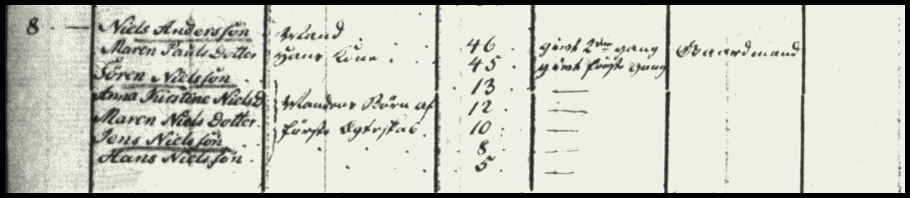 8. — Niels Anderssøn Mand 46 givt 2den gang Gaardmand
Maren Pauls Dotter Hans Kone 45 givt første gang
Søren Nielssøn 13 —
Anna Kirstine Nielsd Mandens Børn af 12 —
Maren Niels Dotter første Egteskab 10 —
Jens Nielssøn 8 —
Hans Nielssøn 5 —